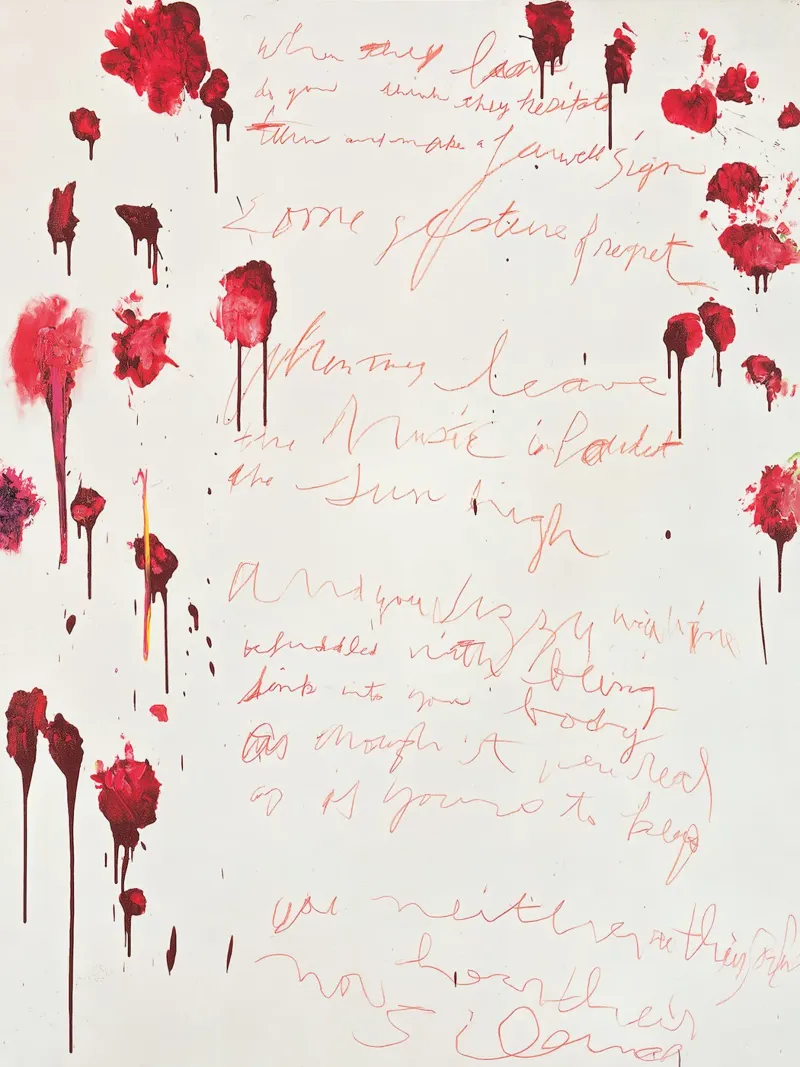 When they leave
do you think they hesitate
turn and make a farewell sign
Some gesture of regret
When they leave
the Music is Loudest
the Sun high
And you dizzy with wine
befuddled with being
sink into your body
As though it were real
as if yours to keep
you neither see their
nor hear their
Silence